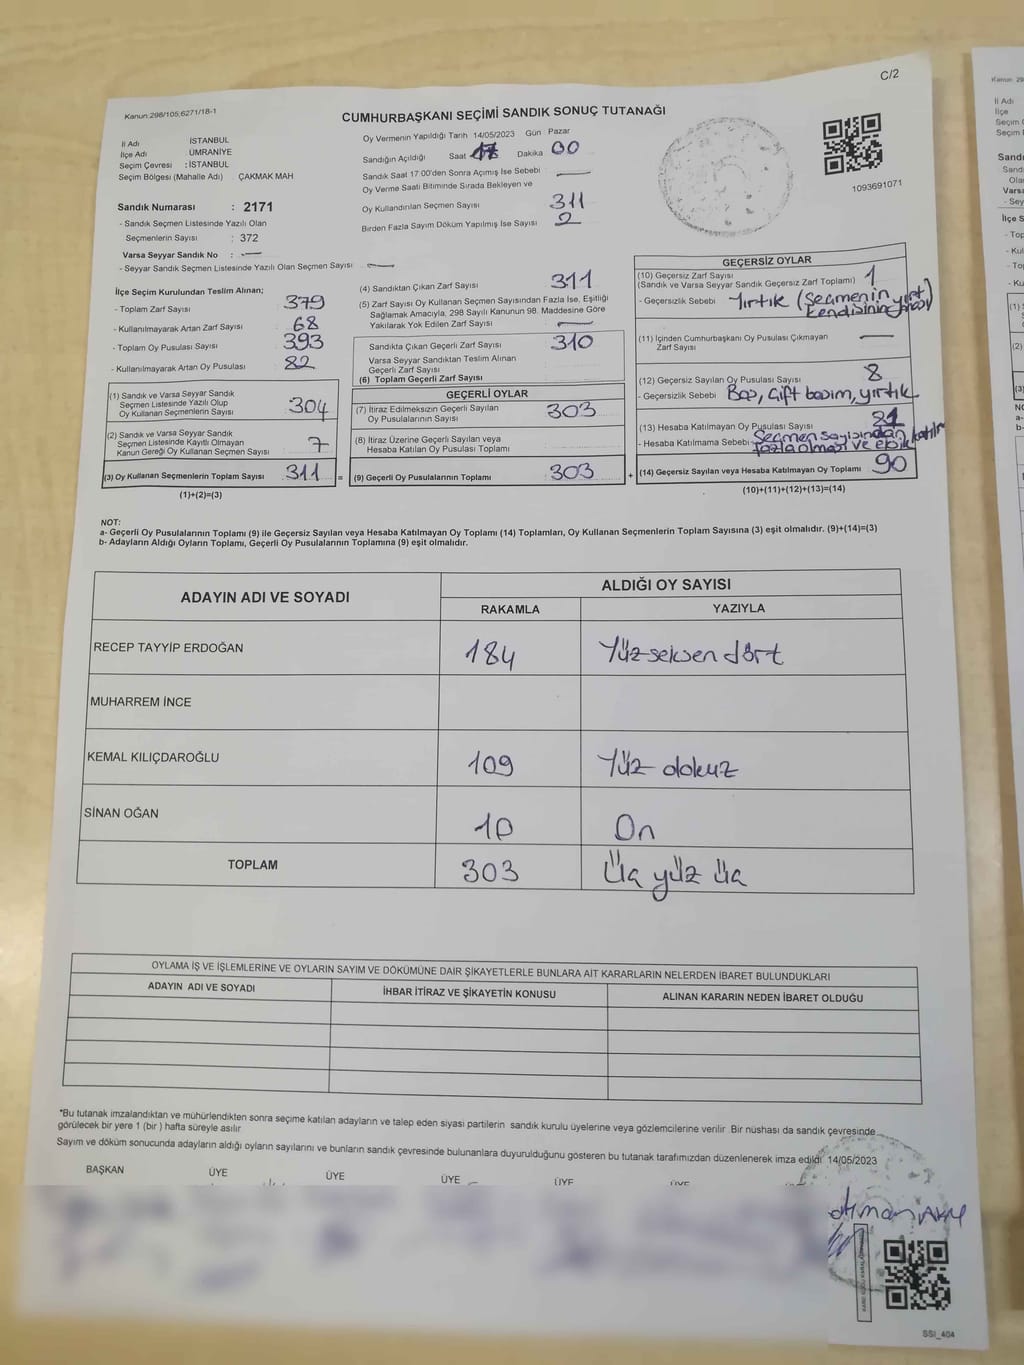 C/2
Kanun:298/105;6271/18-1
CUMHURBAŞKANI SEÇİMİ SANDIK SONUÇ TUTANAĞI
İl Adı İSTANBUL
İlçe Adı : ÜMRANİYE
Seçim Çevresi : İSTANBUL
Seçim Bölgesi (Mahalle Adı) : ÇAKMAK MAH
Sandık Numarası : 2171
- Sandık Seçmen Listesinde Yazılı Olan
Seçmenlerin Sayısı : 372
Varsa Seyyar Sandık No : —
- Seyyar Sandık Seçmen Listesinde Yazılı Olan Seçmen Sayısı : —
Oy Vermenin Yapıldığı Tarih 14/05/2023 Gün Pazar
Sandığın Açıldığı Saat 17 Dakika 00
Sandık Saat 17:00'den Sonra Açımış İse Sebebi —
Oy Verme Saati Bitiminde Sırada Bekleyen ve
Oy Kullandırılan Seçmen Sayısı 311
Birden Fazla Sayım Döküm Yapılmış İse Sayısı 2
1093691071
İlçe Seçim Kurulundan Teslim Alınan;
- Toplam Zarf Sayısı 379
- Kullanılmayarak Artan Zarf Sayısı 68
- Toplam Oy Pusulası Sayısı 393
- Kullanılmayarak Artan Oy Pusulası 82
(1) Sandık ve Varsa Seyyar Sandık
Seçmen Listesinde Yazılı Olup
Oy Kullanan Seçmenlerin Sayısı 304
(2) Sandık ve Varsa Seyyar Sandık
Seçmen Listesinde Kayıtlı Olmayan
Kanun Gereği Oy Kullanan Seçmen Sayısı 7
(3) Oy Kullanan Seçmenlerin Toplam Sayısı 311 =
(1)+(2)=(3)
(4) Sandıktan Çıkan Zarf Sayısı 311
(5) Zarf Sayısı Oy Kullanan Seçmen Sayısından Fazla İse, Eşitliği
Sağlamak Amacıyla, 298 Sayılı Kanunun 98. Maddesine Göre
Yakılarak Yok Edilen Zarf Sayısı —
Sandıkta Çıkan Geçerli Zarf Sayısı 310
Varsa Seyyar Sandıktan Teslim Alınan
Geçerli Zarf Sayısı
(6) Toplam Geçerli Zarf Sayısı
GEÇERLİ OYLAR
(7) İtiraz Edilmeksizin Geçerli Sayılan
Oy Pusulalarının Sayısı 303
(8) İtiraz Üzerine Geçerli Sayılan veya
Hesaba Katılan Oy Pusulası Toplamı
(9) Geçerli Oy Pusulalarının Toplamı 303 +
GEÇERSİZ OYLAR
(10) Geçersiz Zarf Sayısı
(Sandık ve Varsa Seyyar Sandık Geçersiz Zarf Toplamı) 1
- Geçersizlik Sebebi Yırtık (Seçmenin
kendisinin yırtması)
(11) İçinden Cumhurbaşkanı Oy Pusulası Çıkmayan
Zarf Sayısı —
(12) Geçersiz Sayılan Oy Pusulası Sayısı 8
- Geçersizlik Sebebi Boş, Çift basım, yırtık
(13) Hesaba Katılmayan Oy Pusulası Sayısı
- Hesaba Katılmama Sebebi Seçmen sayısından
fazla olması ve
(14) Geçersiz Sayılan veya Hesaba Katılmayan Oy Toplamı 90
(10)+(11)+(12)+(13)=(14)
NOT:
a- Geçerli Oy Pusulalarının Toplamı (9) ile Geçersiz Sayılan veya Hesaba Katılmayan Oy Toplamı (14) Toplamları, Oy Kullanan Seçmenlerin Toplam Sayısına (3) eşit olmalıdır. (9)+(14)=(3)
b- Adayların Aldığı Oyların Toplamı, Geçerli Oy Pusulalarının Toplamına (9) eşit olmalıdır.
ADAYIN ADI VE SOYADI ALDIĞI OY SAYISI
RAKAMLA YAZIYLA
RECEP TAYYİP ERDOĞAN 184 Yüzseksen dört
MUHARREM İNCE
KEMAL KILIÇDAROĞLU 109 Yüz dokuz
SİNAN OĞAN 10 On
TOPLAM 303 Üç yüz üç
OYLAMA İŞ VE İŞLEMLERİNE VE OYLARIN SAYIM VE DÖKÜMÜNE DAİR ŞİKAYETLERLE BUNLARA AİT KARARLARIN NELERDEN İBARET BULUNDUKLARI
ADAYIN ADI VE SOYADI İHBAR İTİRAZ VE ŞİKAYETİN KONUSU ALINAN KARARIN NEDEN İBARET OLDUĞU
*Bu tutanak imzalandıktan ve mühürlendikten sonra seçime katılan adayların ve talep eden siyasi partilerin sandık kurulu üyelerine veya gözlemcilerine verilir. Bir nüshası da sandık çevresinde
görülecek bir yere 1 (bir ) hafta süreyle asılır
Sayım ve döküm sonucunda adayların aldığı oyların sayılarını ve bunların sandık çevresinde bulunanlara duyurulduğunu gösteren bu tutanak tarafımızdan düzenlenerek imza edildi. 14/05/2023
BAŞKAN ÜYE ÜYE ÜYE ÜYE ÜYE
SSI_404